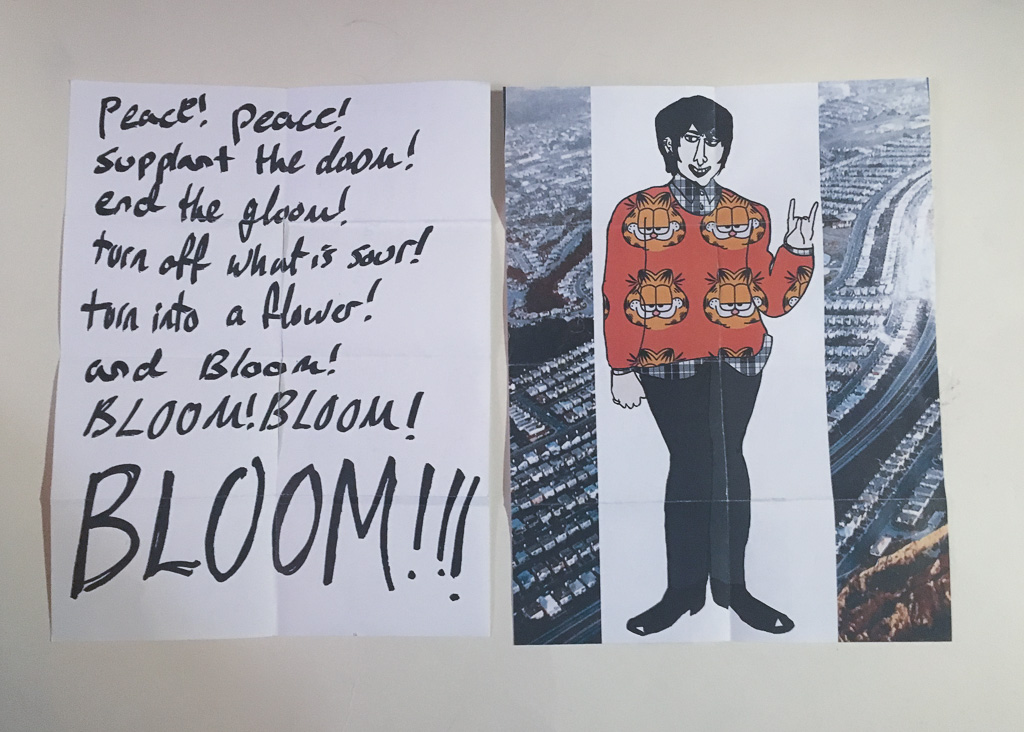 Peace! Peace!
supplant the doom!
end the gloom!
turn off what is sour!
turn into a flower!
and Bloom!
BLOOM! BLOOM!
BLOOM!!!